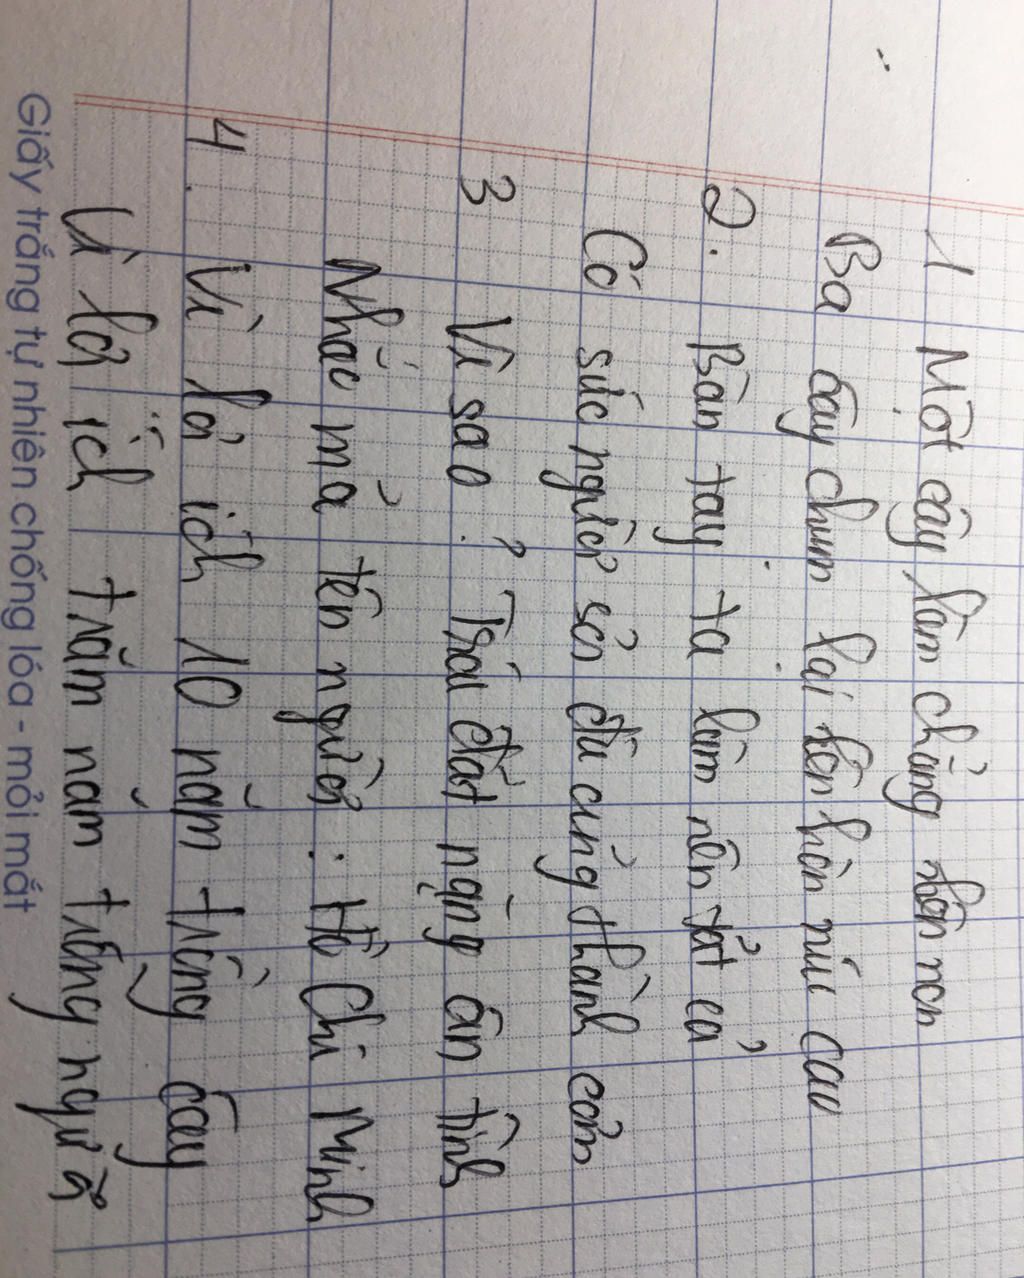 1 Một cây làm chẳng nên non
Ba cây chụm lại nên hòn núi cao
2. Bàn tay ta làm nên tất cả
Có sức người sỏi đá cũng thành cơm
3 Vì sao? Trái đất nặng ân tình
Nhắc mãi tên người: Hồ Chí Minh
4. Vì lợi ích 10 năm trồng cây
Vì lợi ích trăm năm trồng người
Giấy trắng tự nhiên chống lóa - mỏi mắt